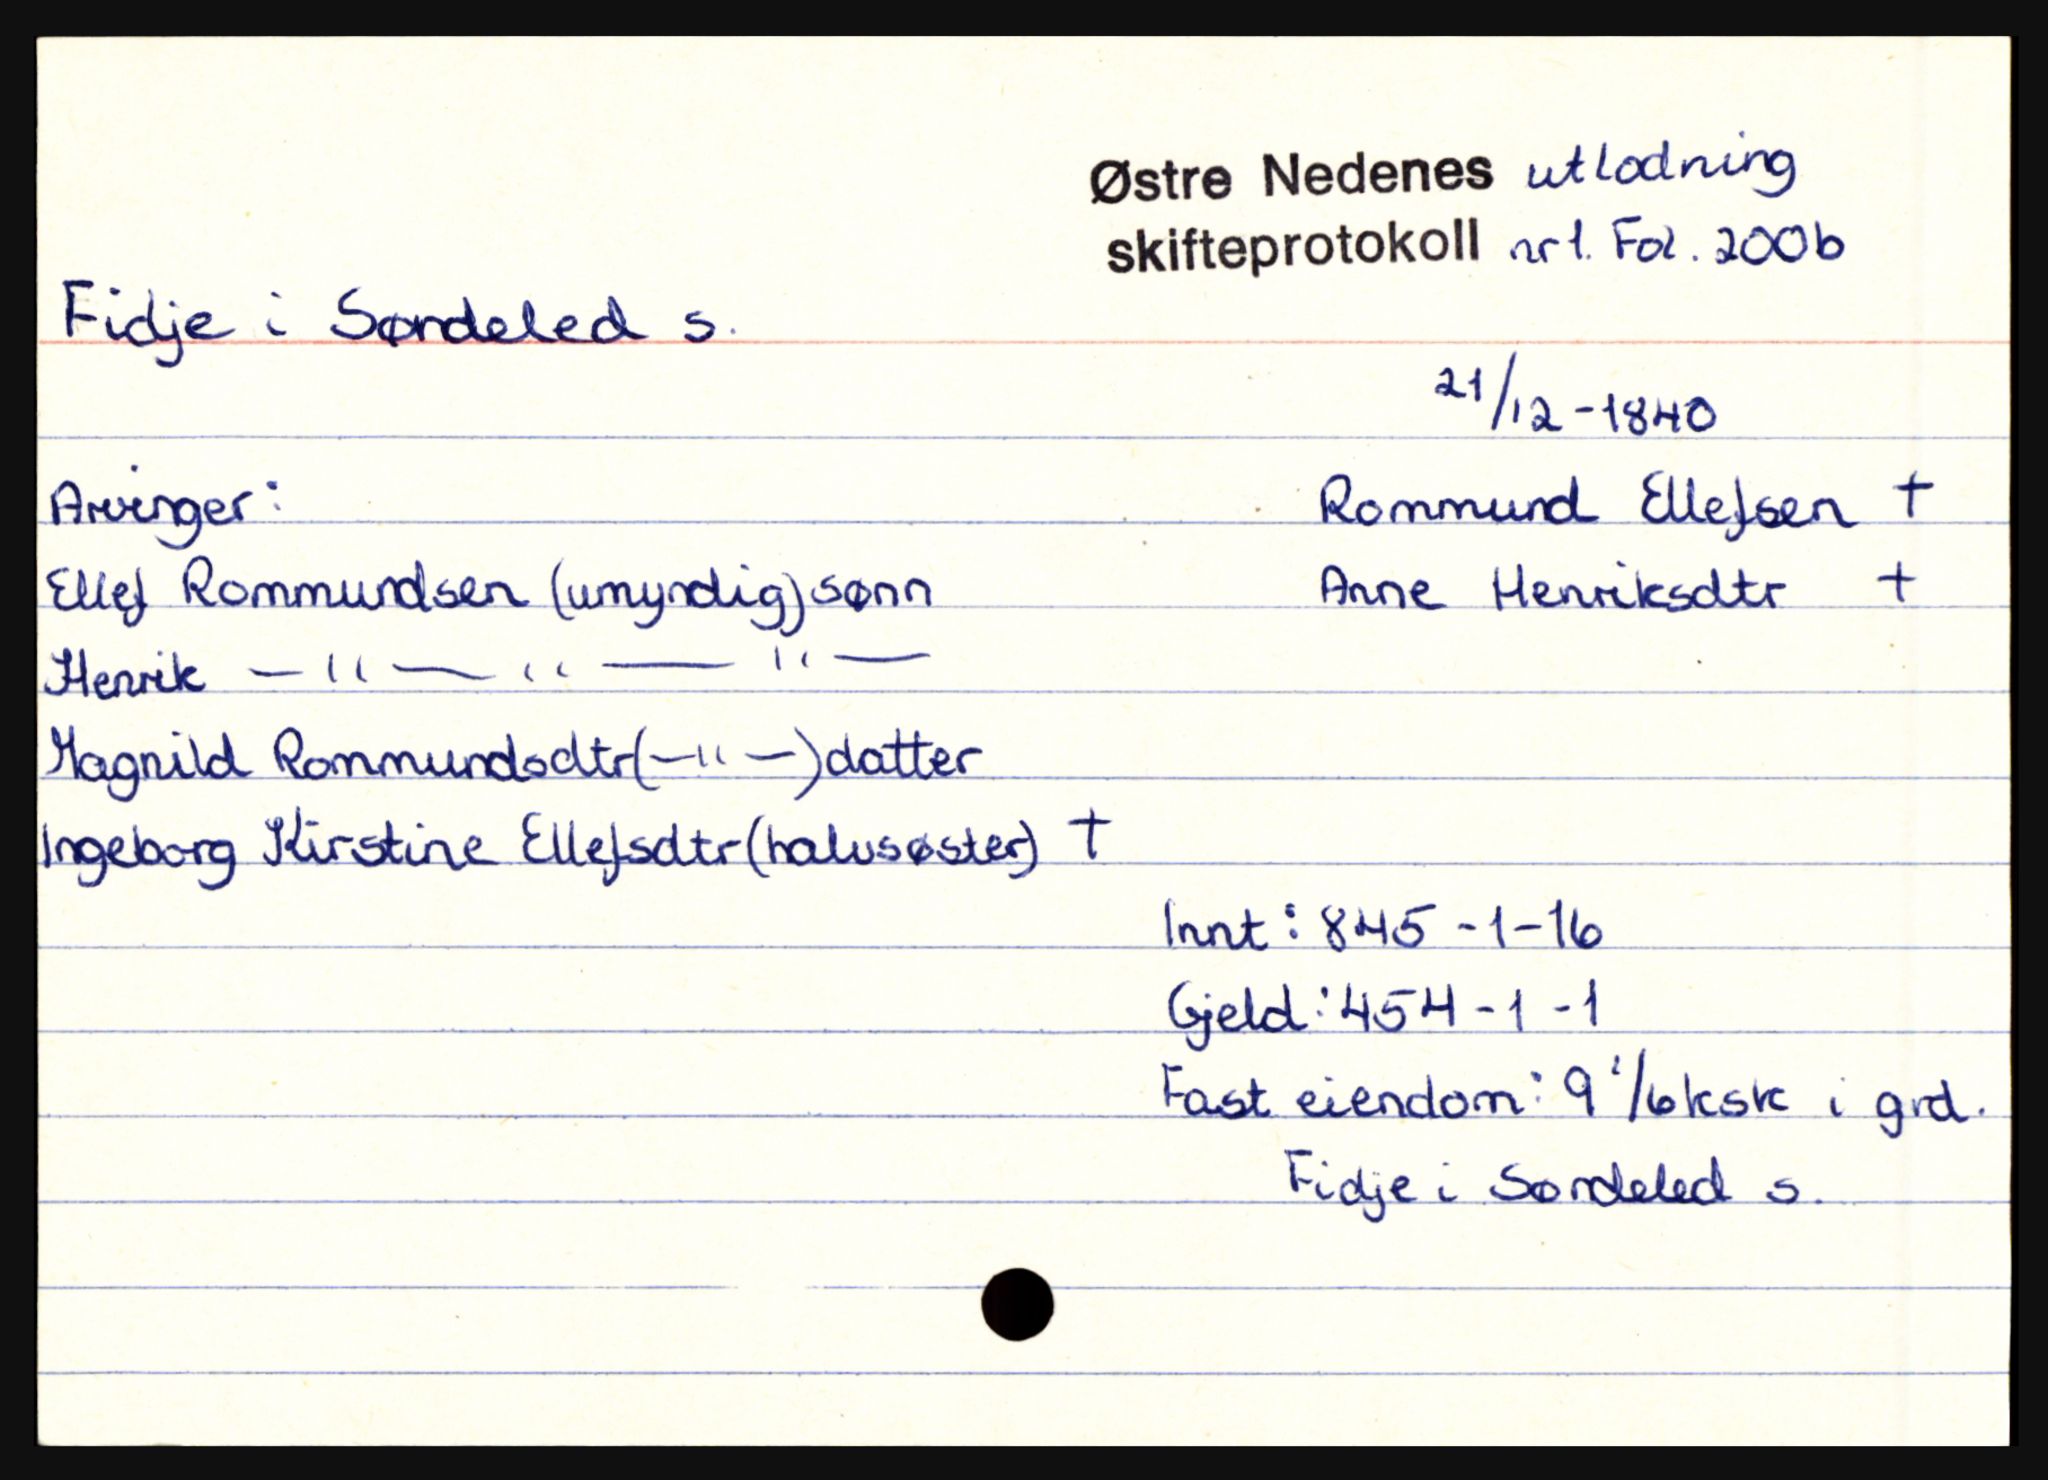 Østre Nedenes utlodning
skifteprotokoll nr 1. Fol. 200b
Fidje i Søndeled s.
21/12-1840
Arvinger:
Rommund Ellefsen †
Ellef Rommundsen (umyndig) sønn
Anne Henriksdtr †
Henrik — " — " — " —
Magnild Rommundsdtr (—"—) datter
Ingeborg Kirstine Ellefsdtr (halvsøster) †
Innt: 845-1-16
Gjeld: 454-1-1
Fast eiendom: 9 1/6 ksk i grd.
Fidje i Søndeled s.